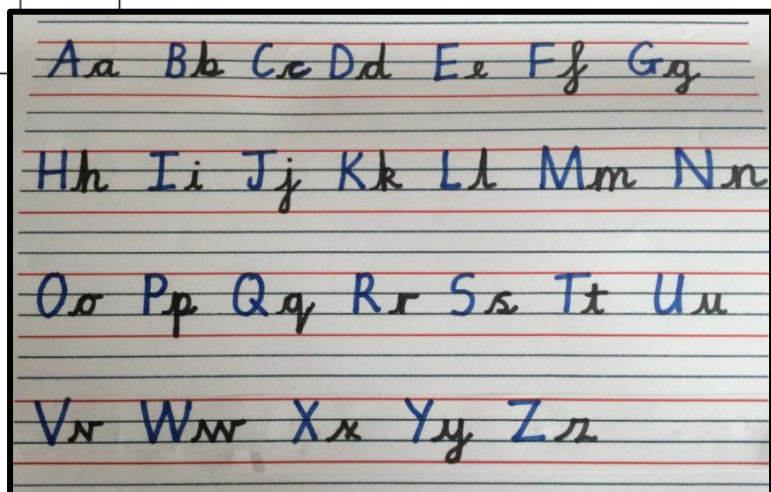 Aa Bb Cc Dd Ee Ff Gg
Hh Ii Jj Kk Ll Mm Nn
Oo Pp Qq Rr Ss Tt Uu
Vv Ww Xx Yy Zz